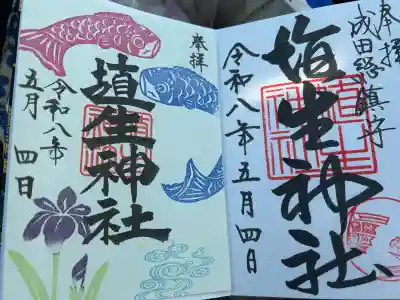 奉拝
成田総鎮守
埴生神社
令和八年五月四日
奉拝
埴生神社
令和八年
五月 四日